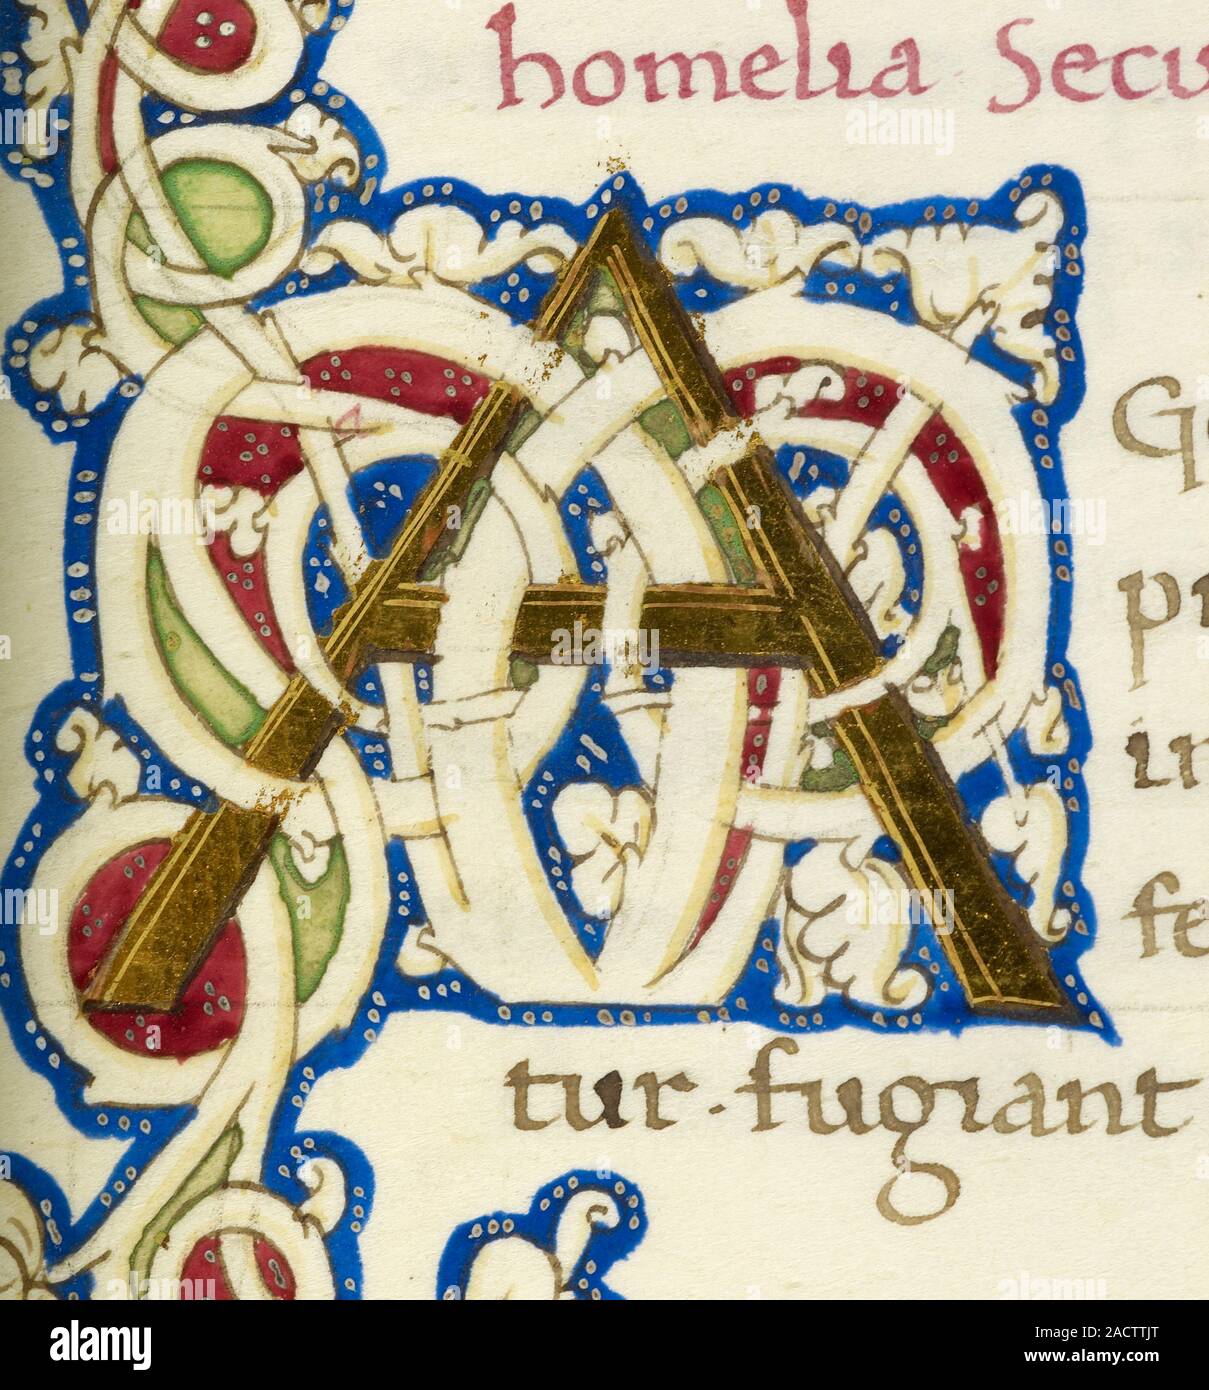 homelia Secu
A
Q
p
in
fe
tur. fugiant
alamy
Image ID: 2ACTTJT
www.alamy.com